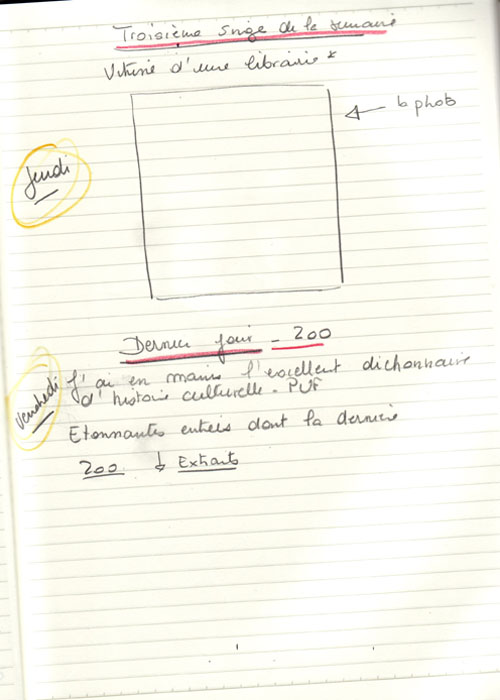 Troisième singe de la semaine
Vitrine d'une librairie *
la photo
Jeudi
Dernier jour - 200
Vendredi
J'ai en mains l'excellent dictionnaire
d'histoire culturelle - PUF
Etonnantes entrées dont la dernière
200 ↓ Extraits